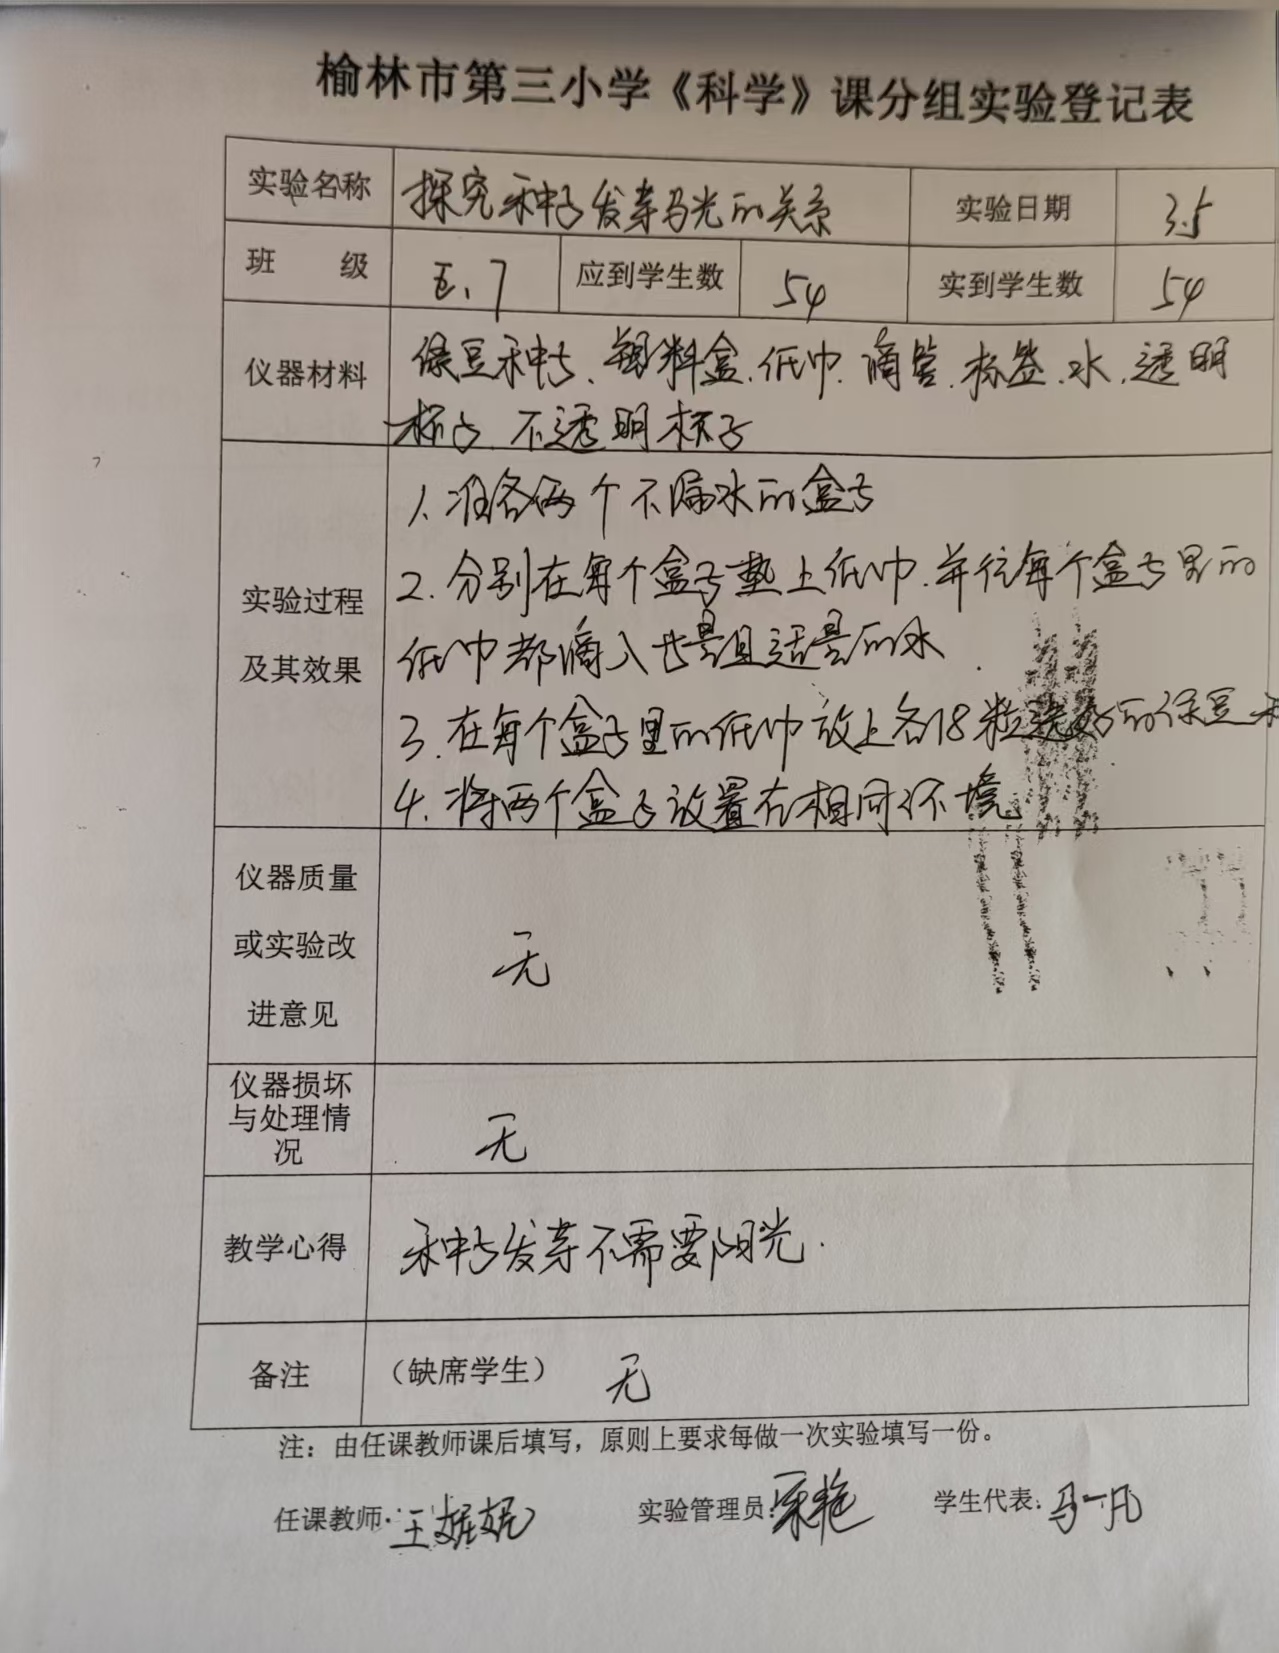 榆林市第三小学《科学》课分组实验登记表
实验名称 探究种子发芽与光的关系 实验日期 3.5
班 级 五.7 应到学生数 54 实到学生数 54
仪器材料 绿豆种子、塑料盒.纸巾.滴管.标签.水.透明
杯子.不透明杯子
1.准备两个不漏水的盒子
2.分别在每个盒子垫上纸巾.并往每个盒子里的
纸巾都滴入等量且适量的水
3.在每个盒子里的纸巾放上各18粒选好的绿豆种
4.将两个盒子放置在相同环境
实验过程
及其效果
仪器质量
或实验改
进意见
无
仪器损坏
与处理情
况
无
教学心得 种子发芽不需要阳光.
备注 （缺席学生） 无
注：由任课教师课后填写，原则上要求每做一次实验填写一份。
任课教师：王娓娓 实验管理员：宋艳 学生代表：马一凡